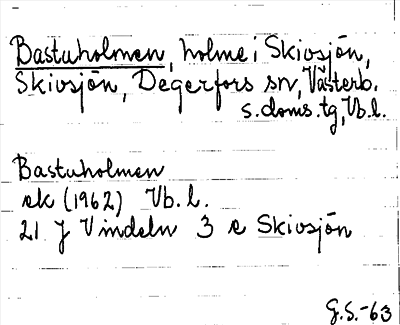 Bastuholmen, holme i Skivsjön,
Skivsjön, Degerfors sn, Västerb.
s. doms. tg, Vb. l.
Bastuholmen
ek (1962) Vb. l.
21 J Vindeln 3 e Skivsjön
G.S.-63